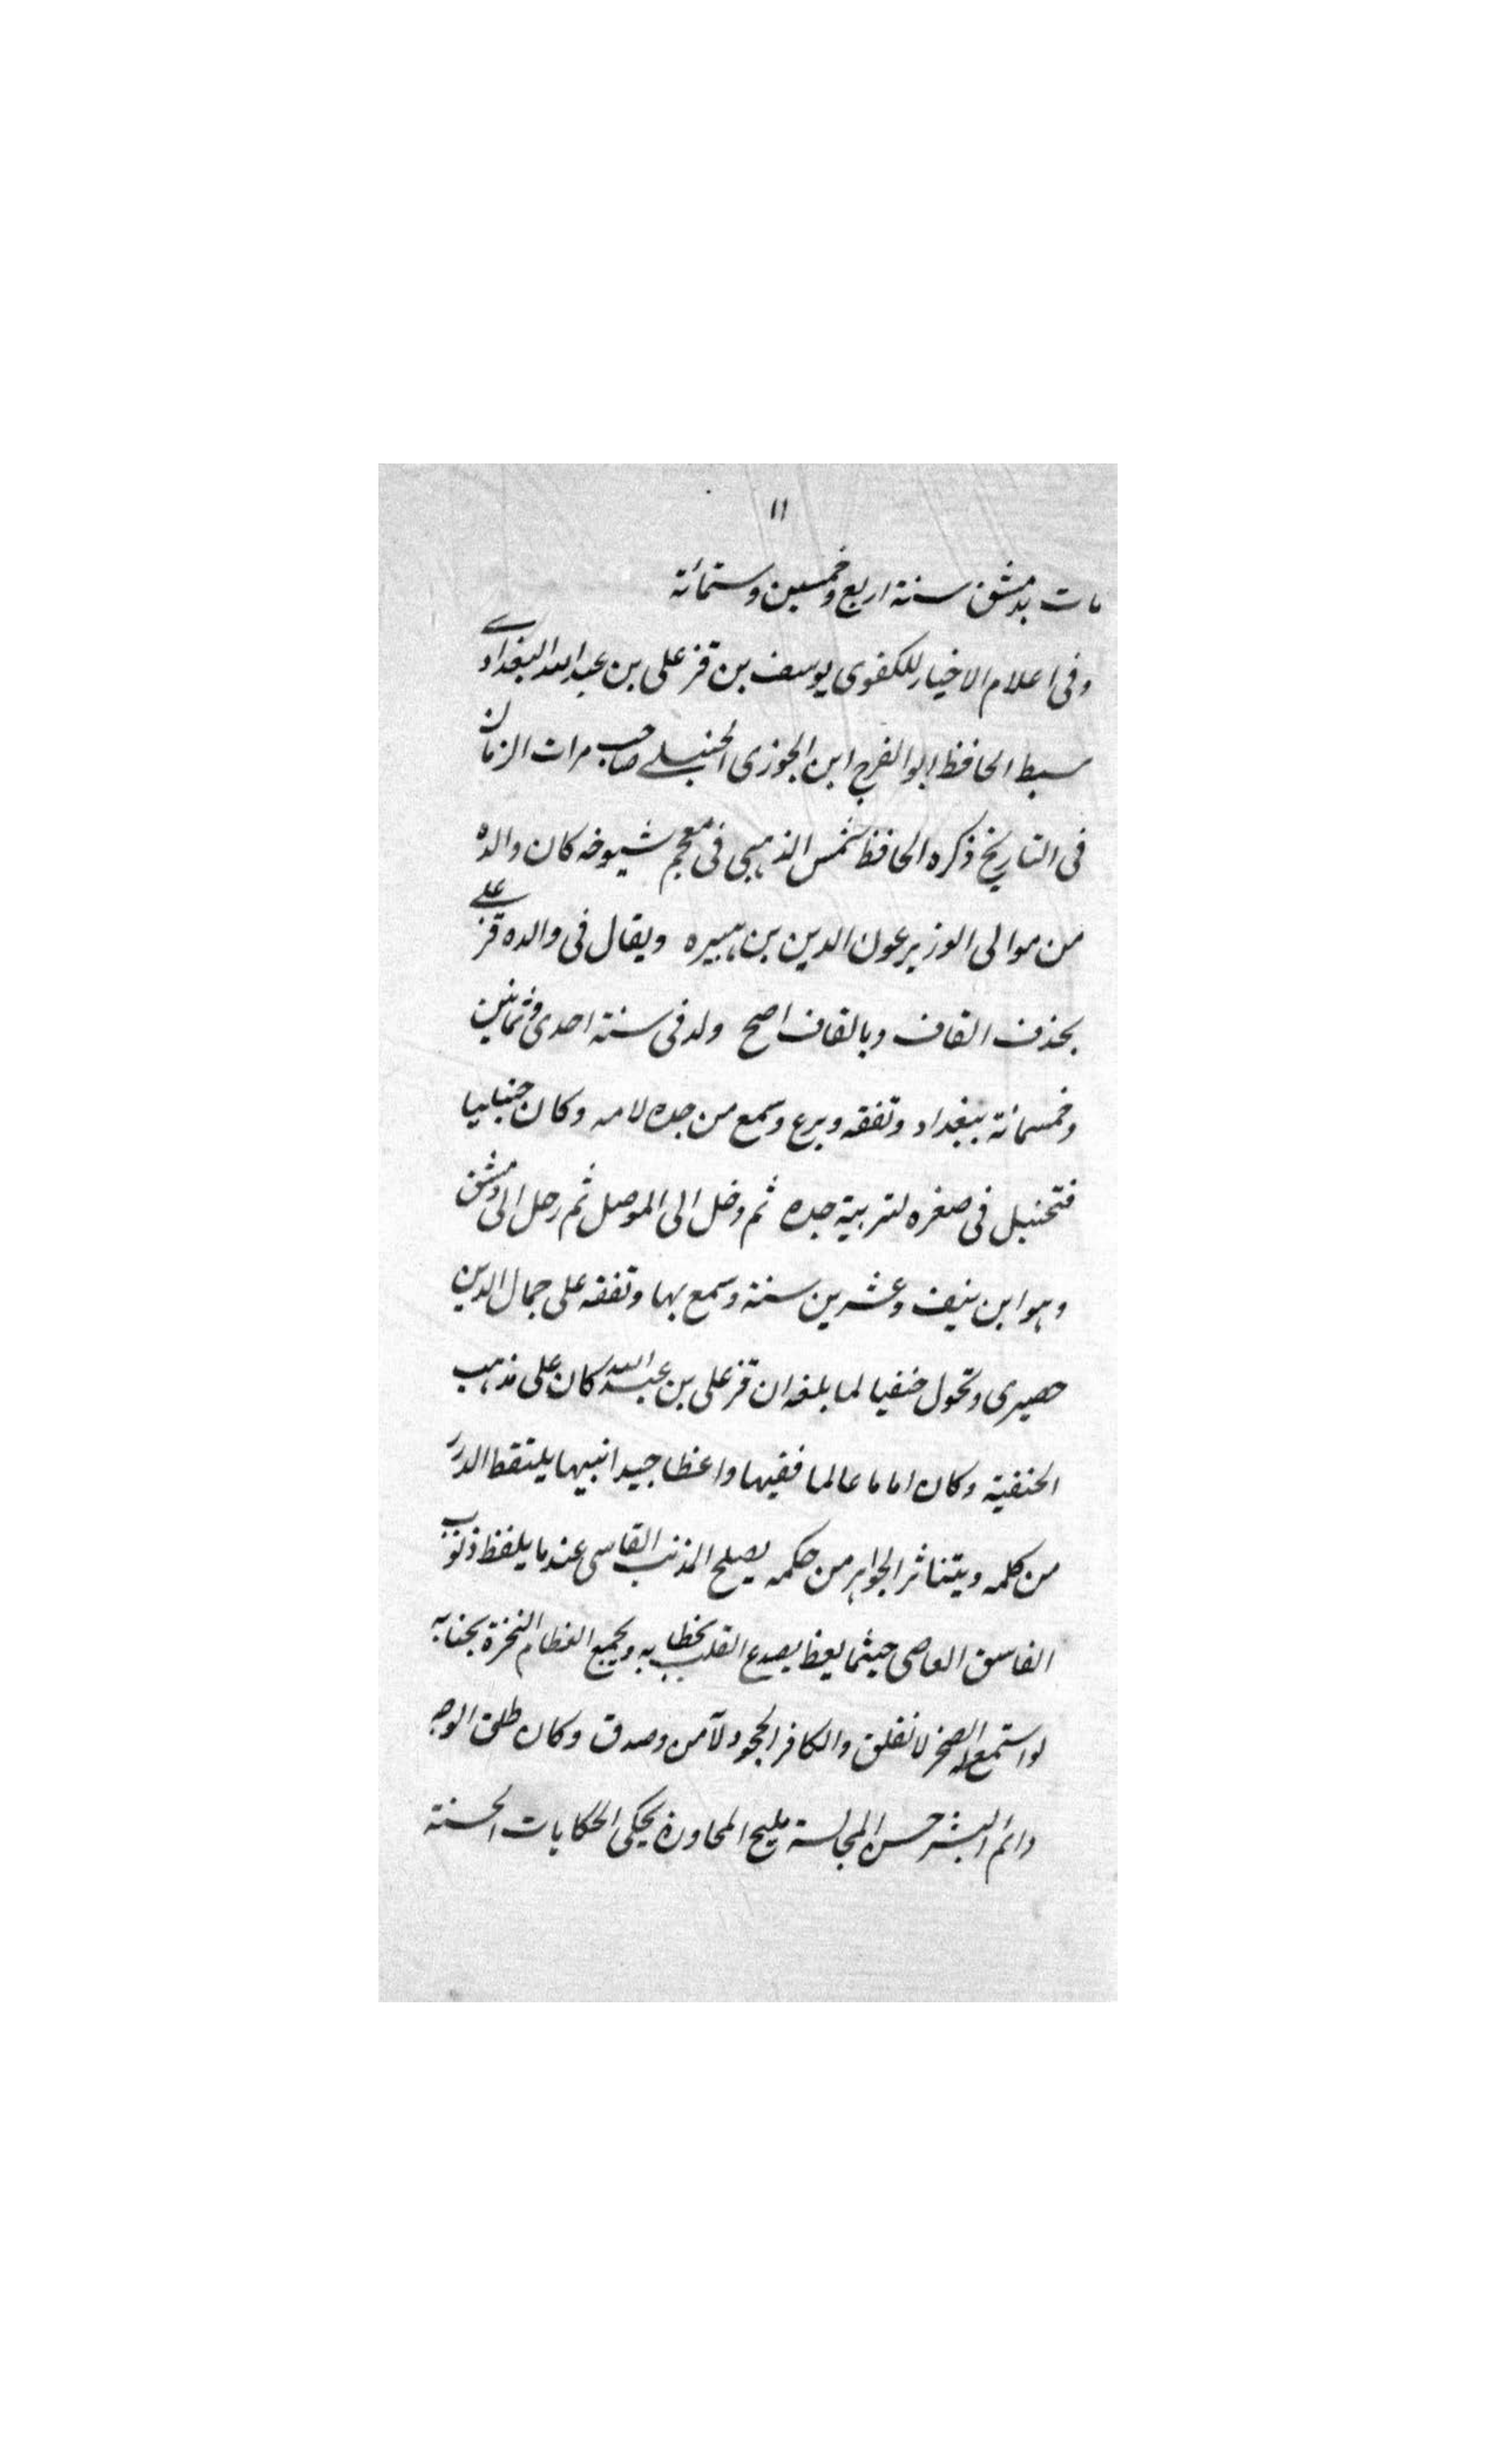 ١١
مات بدمشق سنة اربع وخمسين وستمائة
وفى اعلام الاخيار للكفوى يوسف بن قزعلى بن عبد الله البغدادے
سبط الحافظ ابو الفرج ابن الجوزى الحنبلے صاحب مرات الزمان
فى التاريخ ذكره الحافظ شمس الذهبى فى معجم شيوخه كان والده
من موالى الوزير عون الدين بن هبيره ويقال فى والده قزعلے
بحذف القاف وبالقاف اصح ولد فى سنة احدى وثمانين
وخمسمائة ببغداد وتفقه وبرع وسمع من جده لامه وكان حنبليا
فتحنبل فى صغره لتربية جده ثم دخل الى الموصل ثم رحل الى دمشق
وهو ابن نيف وعشرين سنة وسمع بها وتفقه على جمال الدين
حصيرى وتحول حنفيا لما بلغه ان قزعلى بن عبد الله كان على مذهب
الحنفية وكان اماما عالما فقيها واعظا جيدا نبيها يلتقط الدرر
من كلمه ويتناثر الجواهر من حكمه يصلح المذنب القاسى عندما يلفظ ذنوب
الفاسق العاصى حيثما يعظ يصدع القلب بخطابه ويجمع العظام النخرة بجنابه
لو استمع له الصخر لانفلق والكافر الجحود لآمن وصدق وكان طلق الوجه
دائم البشر حسن المجالسة مليح المحاورة يحكى الحكايات الحسنة